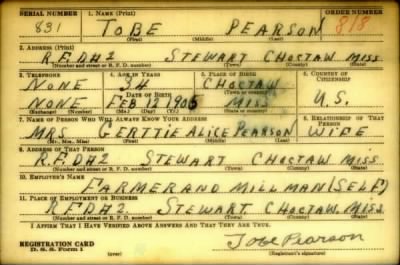 SERIAL NUMBER 1. NAME (Print) ORDER NUMBER
831 TOBE PEARSON 818
(First) (Middle) (Last)
2. ADDRESS (Print)
R.F.D#2 STEWART CHOCTAW MISS
(Number and street or R. F. D. number) (Town) (County) (State)
3. TELEPHONE 4. AGE IN YEARS 5. PLACE OF BIRTH 6. COUNTRY OF CITIZENSHIP
NONE 34 CHOCTAW
(Town or county)
NONE FEB 12 1906 MISS U.S.
(Exchange) (Number) (Mo.) (Day) (Yr.) (State or country)
7. NAME OF PERSON WHO WILL ALWAYS KNOW YOUR ADDRESS 8. RELATIONSHIP OF THAT PERSON
MRS GERTTIE ALICE PEARSON WIFE
(Mr., Mrs., Miss) (First) (Middle) (Last)
9. ADDRESS OF THAT PERSON
R.F.D#2 STEWART CHOCTAW MISS
(Number and street or R. F. D. number) (Town) (County) (State)
10. EMPLOYER'S NAME
FARMER AND MILLMAN (SELF)
11. PLACE OF EMPLOYMENT OR BUSINESS
R.F.D#2 STEWART CHOCTAW MISS
(Number and street or R. F. D. number) (Town) (County) (State)
I AFFIRM THAT I HAVE VERIFIED ABOVE ANSWERS AND THAT THEY ARE TRUE.
REGISTRATION CARD Tobe Pearson
D. S. S. Form 1 (over) (Registrant's signature)